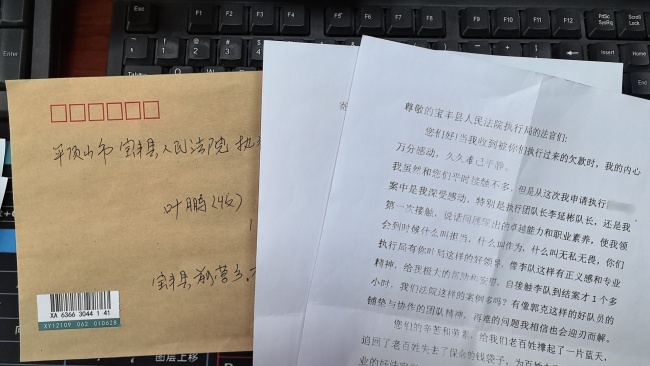 平顶山市宝丰县人民法院 执
叶鹏(收)
宝丰县
XA 6366 3044 1 41
XY12109 062 010628
尊敬的宝丰县人民法院执行局的法官们:
您们好!当我收到被你们执行过来的欠款时,我的内心
万分感动,久久难已平静。
我虽然和您们平时接触不多,但是从这次我申请执行
案中是我深受感动,特别是执行团队长李延彬队长,还是我
第一次接触,说话间展现出的卓越能力和职业素养,使我领
会到时候什么叫担当,什么叫作为,什么叫无私无畏,你们
执行局有你叶局这样的好领导,像李队这样有正义感和专业
精神,给我极大的鼓励和安慰,自接触李队到结案才1个多
小时,我们法院这样的案例多吗?有像郭克这样的好队员的
铺垫与协作的团队精神,再难的问题我相信也会迎刃而解。
您们的辛苦和劳累,给我们老百姓撑起了一片蓝天,
追回了老百姓失去了保命的钱袋子,为百姓
业的好法官
Enter
F3
F4
F5
F6
F7
F8
F9
F10
F11
F12
PrtSc
SysRq
Scroll
Lock
Home
图层上移